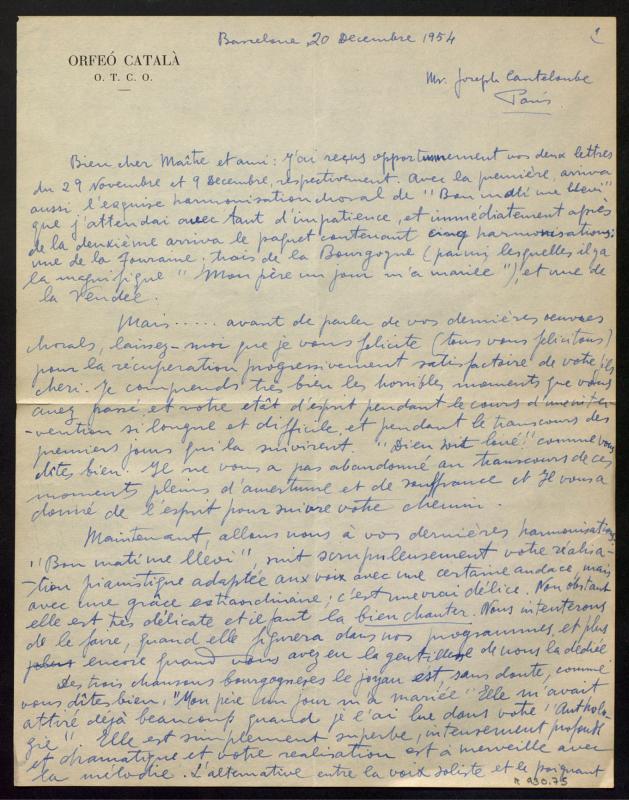 Barcelone, 20 Decembre 1954
1
ORFEÓ CATALÀ
O. T. C. O.
Mr. Joseph Canteloube
Paris
Bien cher Maître et ami: J'ai reçus opportunement vos deux lettres
du 29 Novembre et 9 Decembre, respectivement. Avec la première, arriva
aussi l'exquise harmonisation choral de "Bon mati me llevi"
que j'attendai avec tant d'impatience, et immédiatement après
de la deuxième arriva le paquet contenant cinq harmonisations:
une de la Touraine, trois de la Bourgogne (parmi lesquelles il y a
la magnifique "Mon père un jour m'a mariée"), et une de
la Vendée.
Mais..... avant de parler de vos dernières oeuvres
chorals, laissez-moi que je vous felicite (tous vous felicitons)
pour la récuperation progressivement satisfactoire de votre fils
cheri. Je comprends tres bien les horribles moments que vous
avez passé, et votre etât d'esprit pendant le cours d'une inter-
-vention si longue et difficile, et pendant le transcours des
premiers jours qui la suivirent. "Dieu soit loué" comme vous
dites bien. Il ne vous a pas abandonné au transcours de ces
moments pleins d'amertume et de souffrance et Il vous a
donné de l'esprit pour suivre votre chemin.
Maintenant, allons nous à vos dernières harmonisations
"Bon mati me llevi" suit scrupuleusement votre réalisa-
-tion pianistique adaptée aux voix avec une certaine audace, mais
avec une grâce extraordinaire; c'est une vrai délice. Non obstant
elle est très délicate et il faut la bien chanter. Nous intenterons
de le faire, quand elle figurera dans nos programmes, et plus
encore quand vous avez eu la gentillese de nous la dédié
Des trois chansons bourgognes es le joyau est, sans doute, comme
vous dîtes bien, "Mon père un jour m'a mariée" Elle m'avait
attiré déjà beaucoup quand je l'ai lue dans votre "Antholo-
gie" Elle est simplement superbe, intensement profonde
et dramatique et votre realisation est à merveille avec
la mélodie. L'alternative entre la voix soliste et le poignant
R 930.75